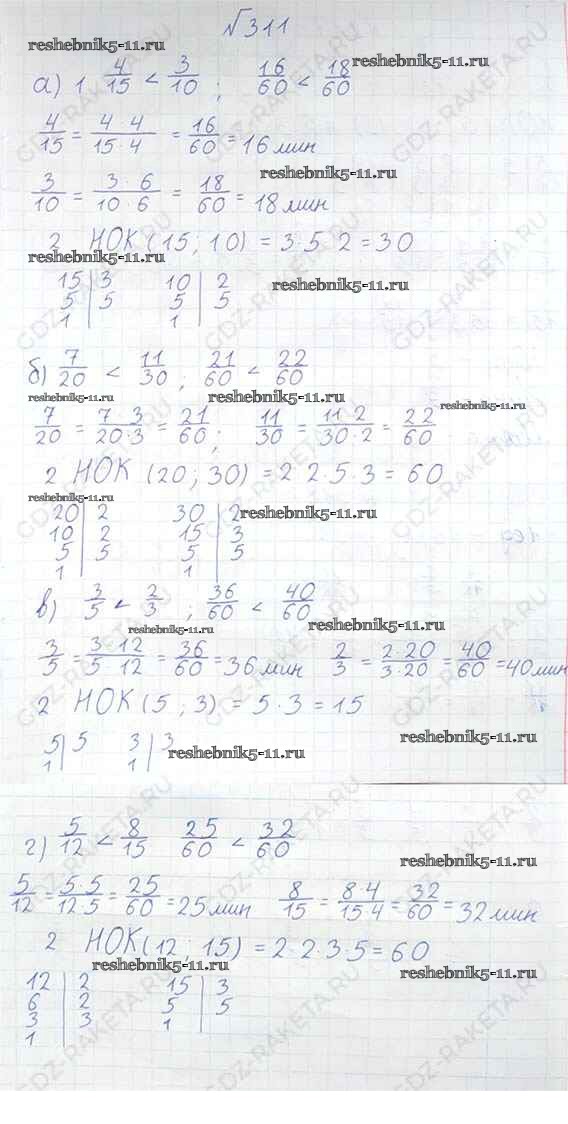 №311
reshebnik5-11.ru
reshebnik5-11.ru
а) 1. 4/15 < 3/10 ; 16/60 < 18/60
4/15 = 4·4/15·4 = 16/60 = 16 мин
reshebnik5-11.ru
3/10 = 3·6/10·6 = 18/60 = 18 мин
2 НОК (15; 10) = 3·5·2 = 30
reshebnik5-11.ru
15 | 3 10 | 2
reshebnik5-11.ru
5 | 5 5 | 5
1 | 1 |
б) 7/20 < 11/30 ; 21/60 < 22/60
reshebnik5-11.ru
reshebnik5-11.ru
reshebnik5-11.ru
7/20 = 7·3/20·3 = 21/60 ; 11/30 = 11·2/30·2 = 22/60
2 НОК (20; 30) = 2·2·5·3 = 60
reshebnik5-11.ru
20 | 2 30 | 2
reshebnik5-11.ru
10 | 2 15 | 3
5 | 5 5 | 5
1 | 1 |
в) 3/5 < 2/3 ; 36/60 < 40/60
reshebnik5-11.ru
reshebnik5-11.ru
3/5 = 3·12/5 12 = 36/60 = 36 мин 2/3 = 2·20/3·20 = 40/60 = 40 мин
2 НОК (5; 3) = 5·3 = 15
5 | 5 3 | 3
1 | 1 |
reshebnik5-11.ru
г) 5/12 < 8/15 25/60 < 32/60
reshebnik5-11.ru
5/12 = 5·5/12·5 = 25/60 = 25 мин 8/15 = 8·4/15·4 = 32/60 = 32 мин
2 НОК (12; 15) = 2·2·3·5 = 60
reshebnik5-11.ru
reshebnik5-11.ru
12 | 2 15 | 3
6 | 2 5 | 5
3 | 3 1 |
1 |
GDZ-RAKETA.RU